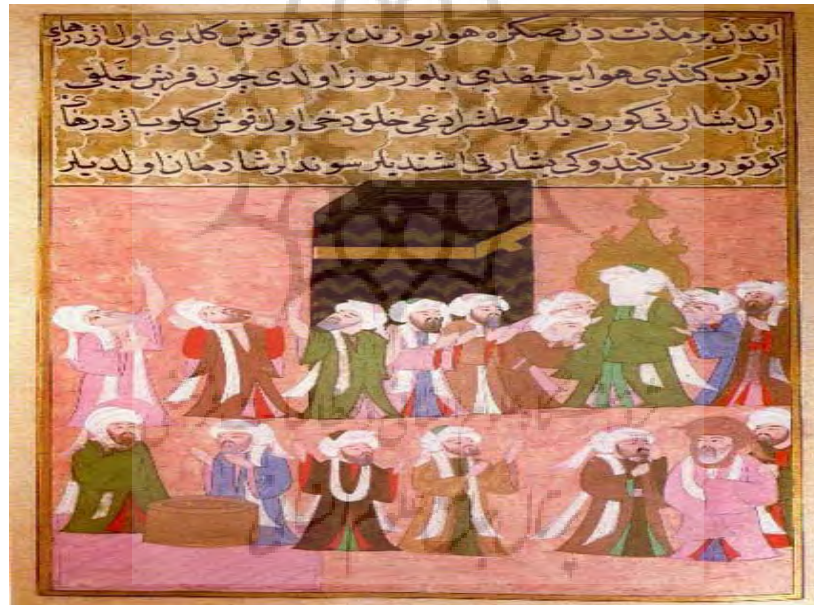 اندن بر مدت دن صكره هوا يوزندن بر آق قوش كلدى اول اژدرهاى
الوب كتدى هوايه چقدى بلورسوز اولدى چون قريش خلقى
اول بشارتى كورديلر وطشراداغى خلق دخى اول قوش كلوب اژدرهاى
كوتوروب كتدوكى بشارتى اشتديلر سوندلر شادمان اولديلر